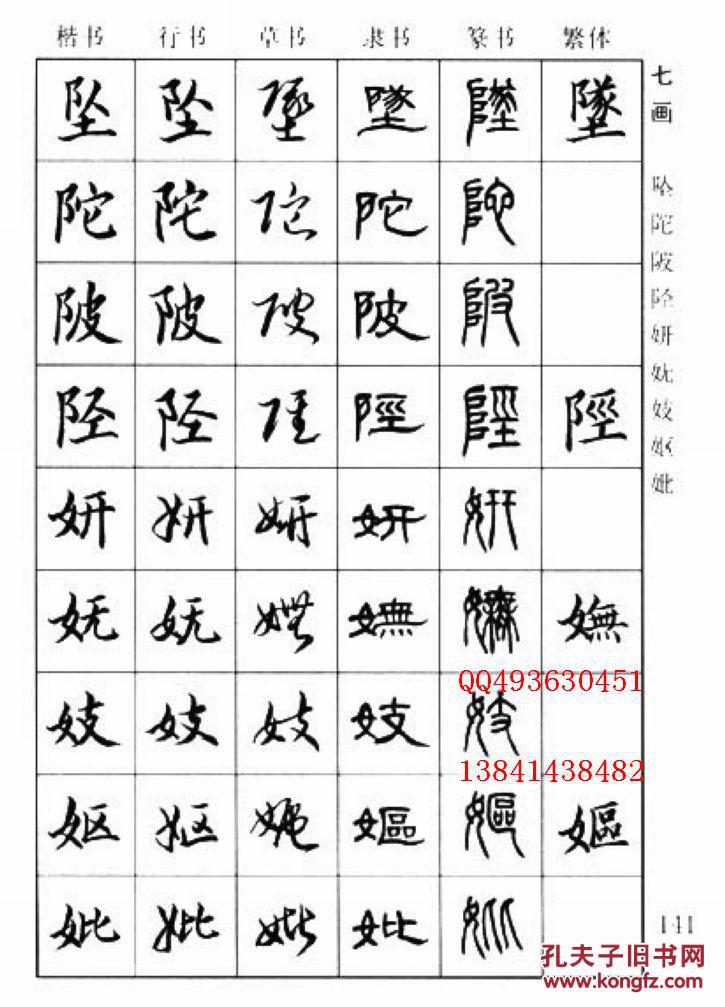 楷书 行书 草书 隶书 篆书 繁体
坠 坠 墜 墜 墜 墜
陀 陀 陀 陀 陀
陂 陂 陂 陂 陂
陉 陉 陘 陘 陘 陘
妍 妍 妍 妍 妍
妩 妩 嫵 嫵 嫵 嫵
妓 妓 妓 妓 妓
妪 妪 嫗 嫗 嫗 嫗
妣 妣 妣 妣 妣
七画
坠陀陂陉妍妩妓妪妣
141
QQ493630451
13841438482
孔夫子旧书网
www.kongfz.com